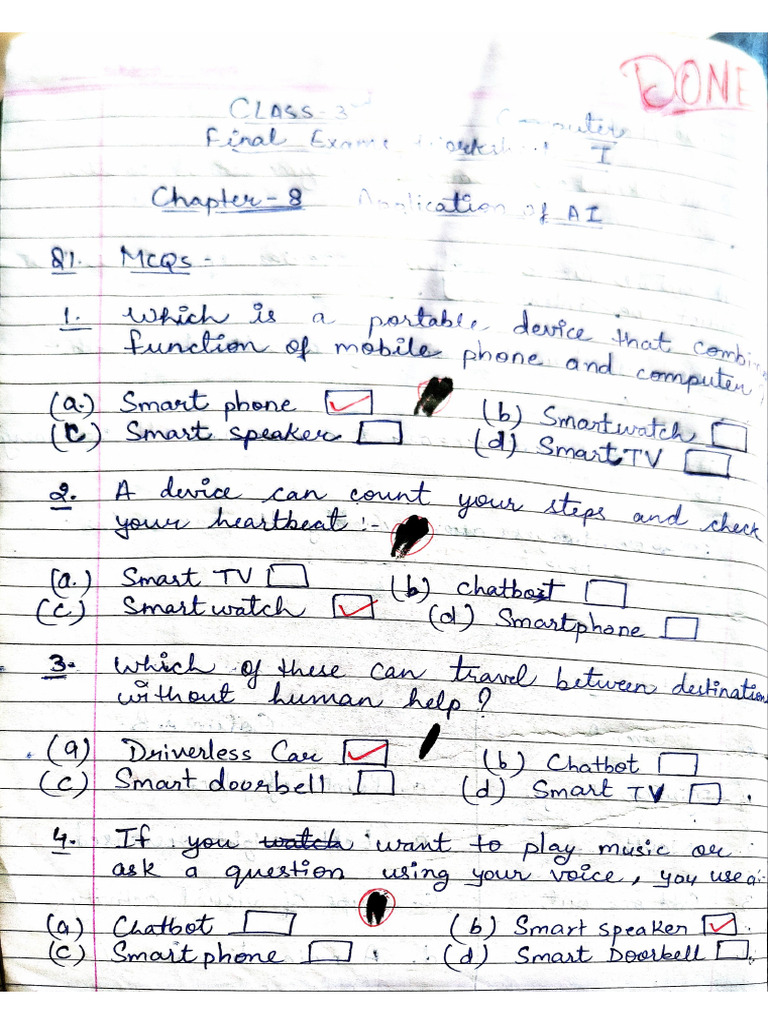 DONE
CLASS-3rd Computer
Final Exam I
Chapter-8 Application of AI
Q1. MCQs -
1. Which is a portable device that combin
function of mobile phone and computer
(a.) Smart phone (b) Smartwatch
(c) Smart speaker (d) Smart TV
2. A device can count your steps and check
your heartbeat :-
(a.) Smart TV (b) Chatbot
(c) Smart watch (d) Smartphone
3. Which of these can travel between destination
without human help?
(a) Driverless Car (b) Chatbot
(c) Smart doorbell (d) Smart TV
4. If you watch want to play music or
ask a question using your voice, you use a:-
(a) Chatbot (b) Smart speaker
(c) Smart phone (d) Smart Doorbell